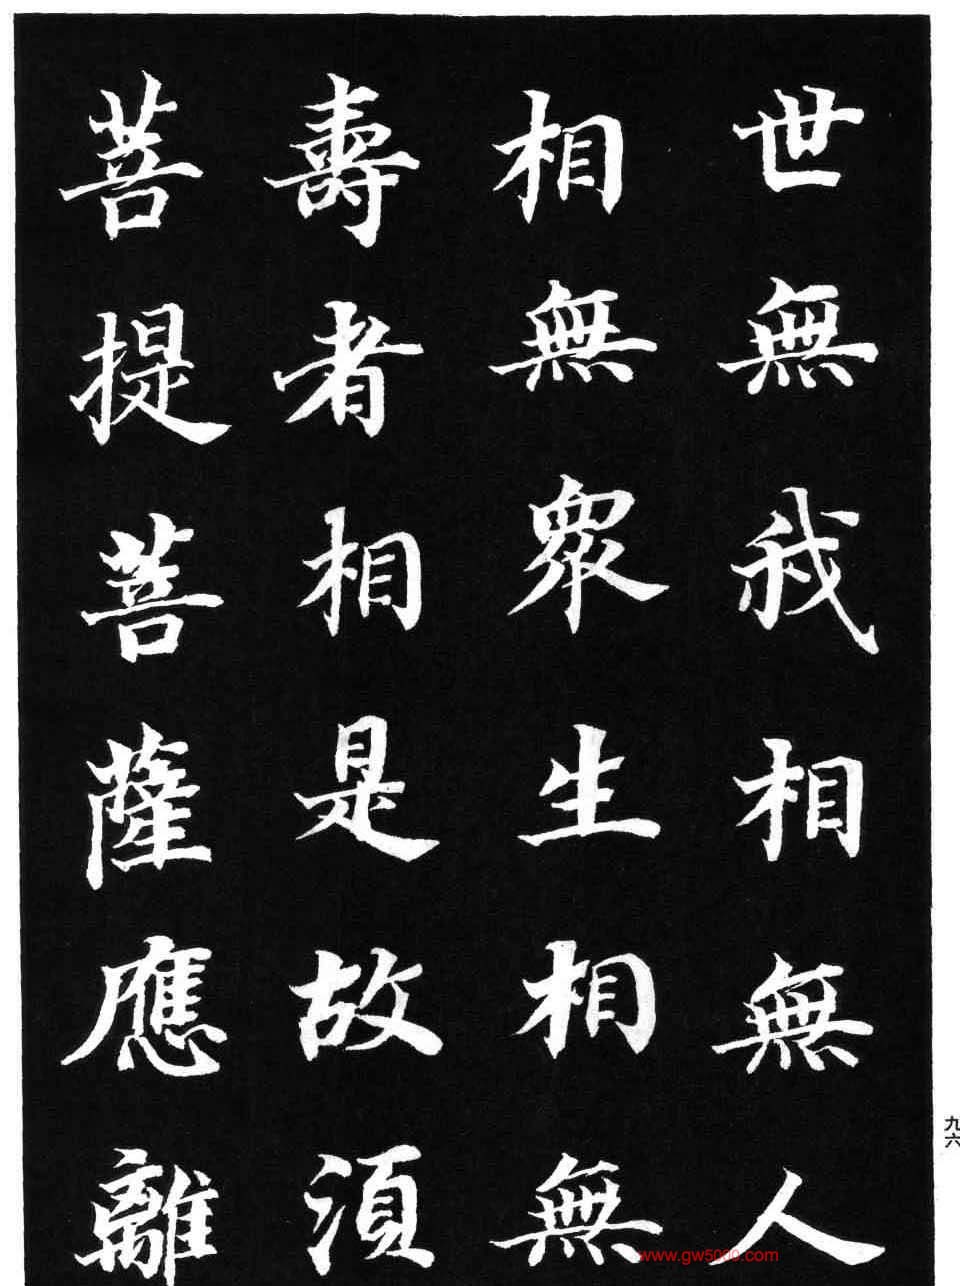 世無我相無人
相無衆生相無
壽者相是故須
菩提菩薩應離
九六
www.gw5000.com